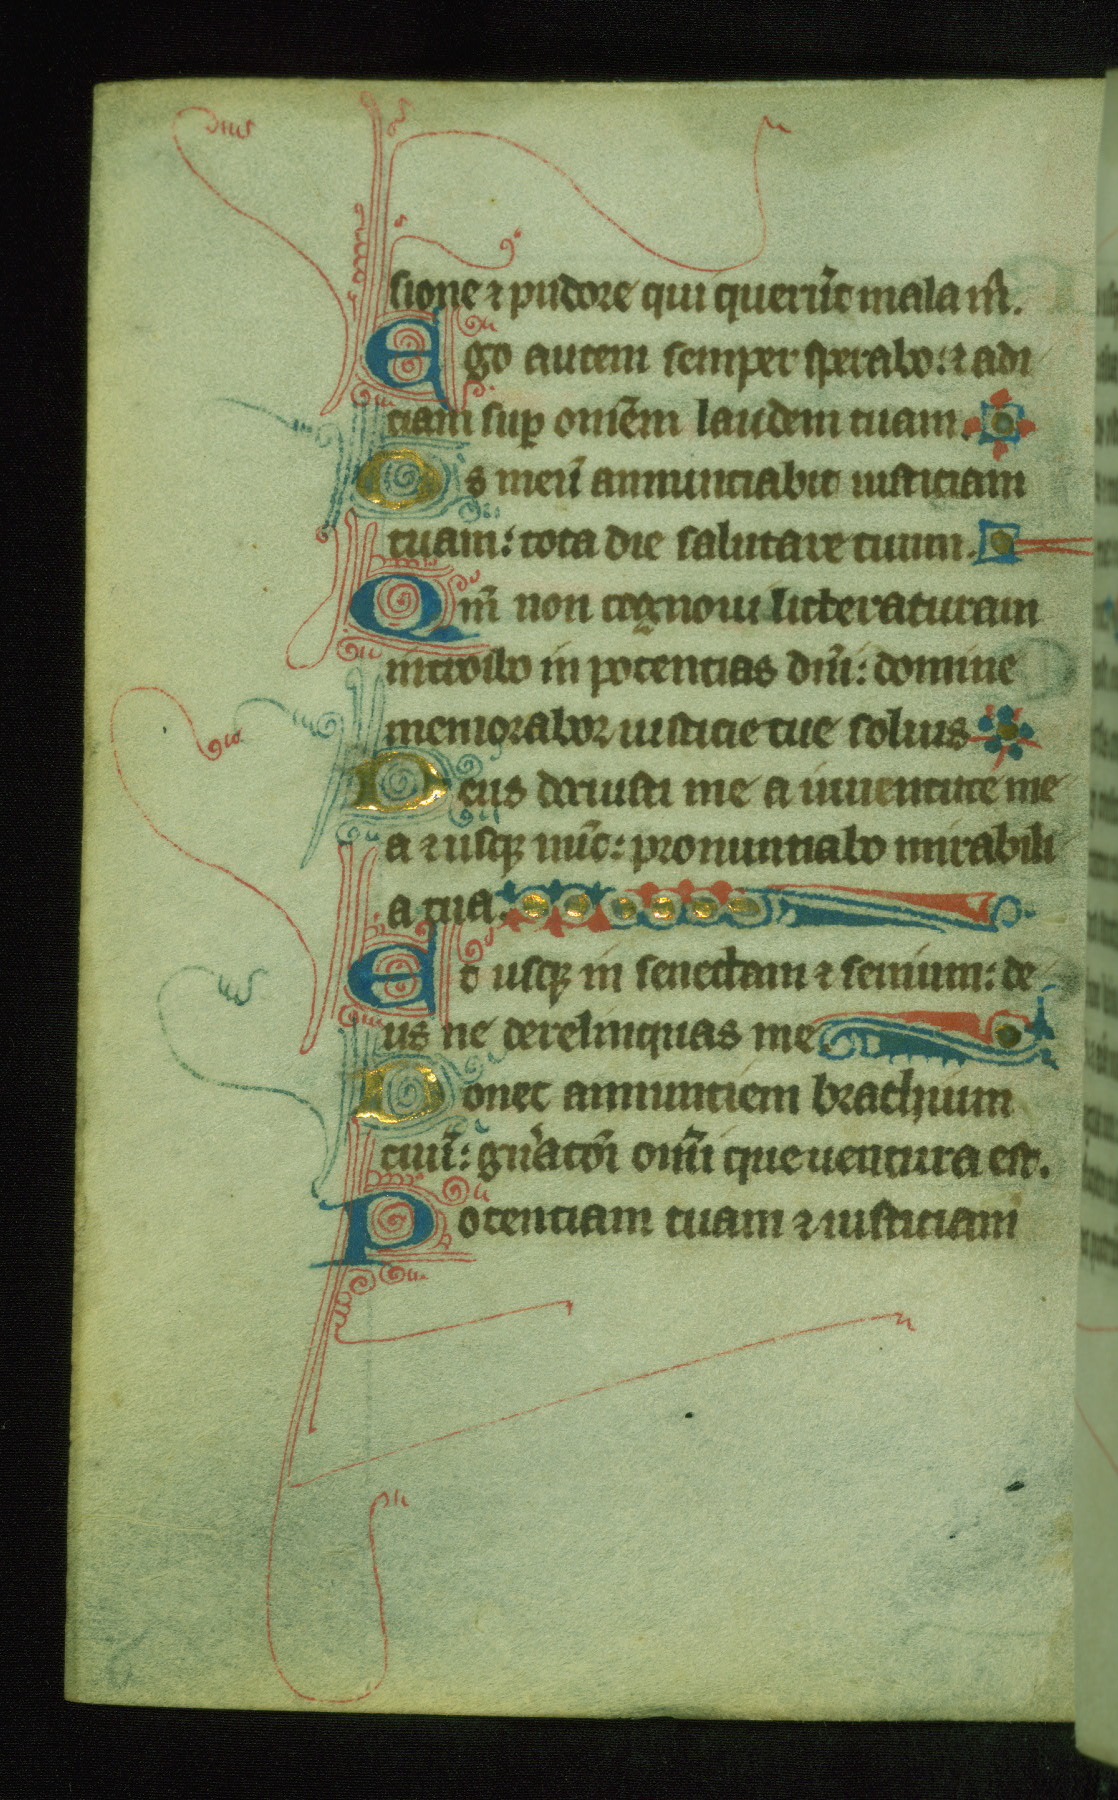 sione ⁊ pudore qui querūt mala m̄.
Ego autem semper sperabo: ⁊ adi
ciam sup omēm laudem tuam.
Os meū annunciabit iusticiam
tuam: tota die salutare tuum.
Qm̄ non cognoui litteraturam
introibo in potencias dn̄i: domine
memorabor iusticie tue solius
Deus docuisti me a iuuentute me
a ⁊ usq nūc: pronuntiabo mirabili
a tua.
Et usq in senectam ⁊ senium: de
us ne derelinquas me.
Donec annuntiem brachium
tuū: gn̄atōi om̄i que uentura est.
Potentiam tuam ⁊ iusticiam